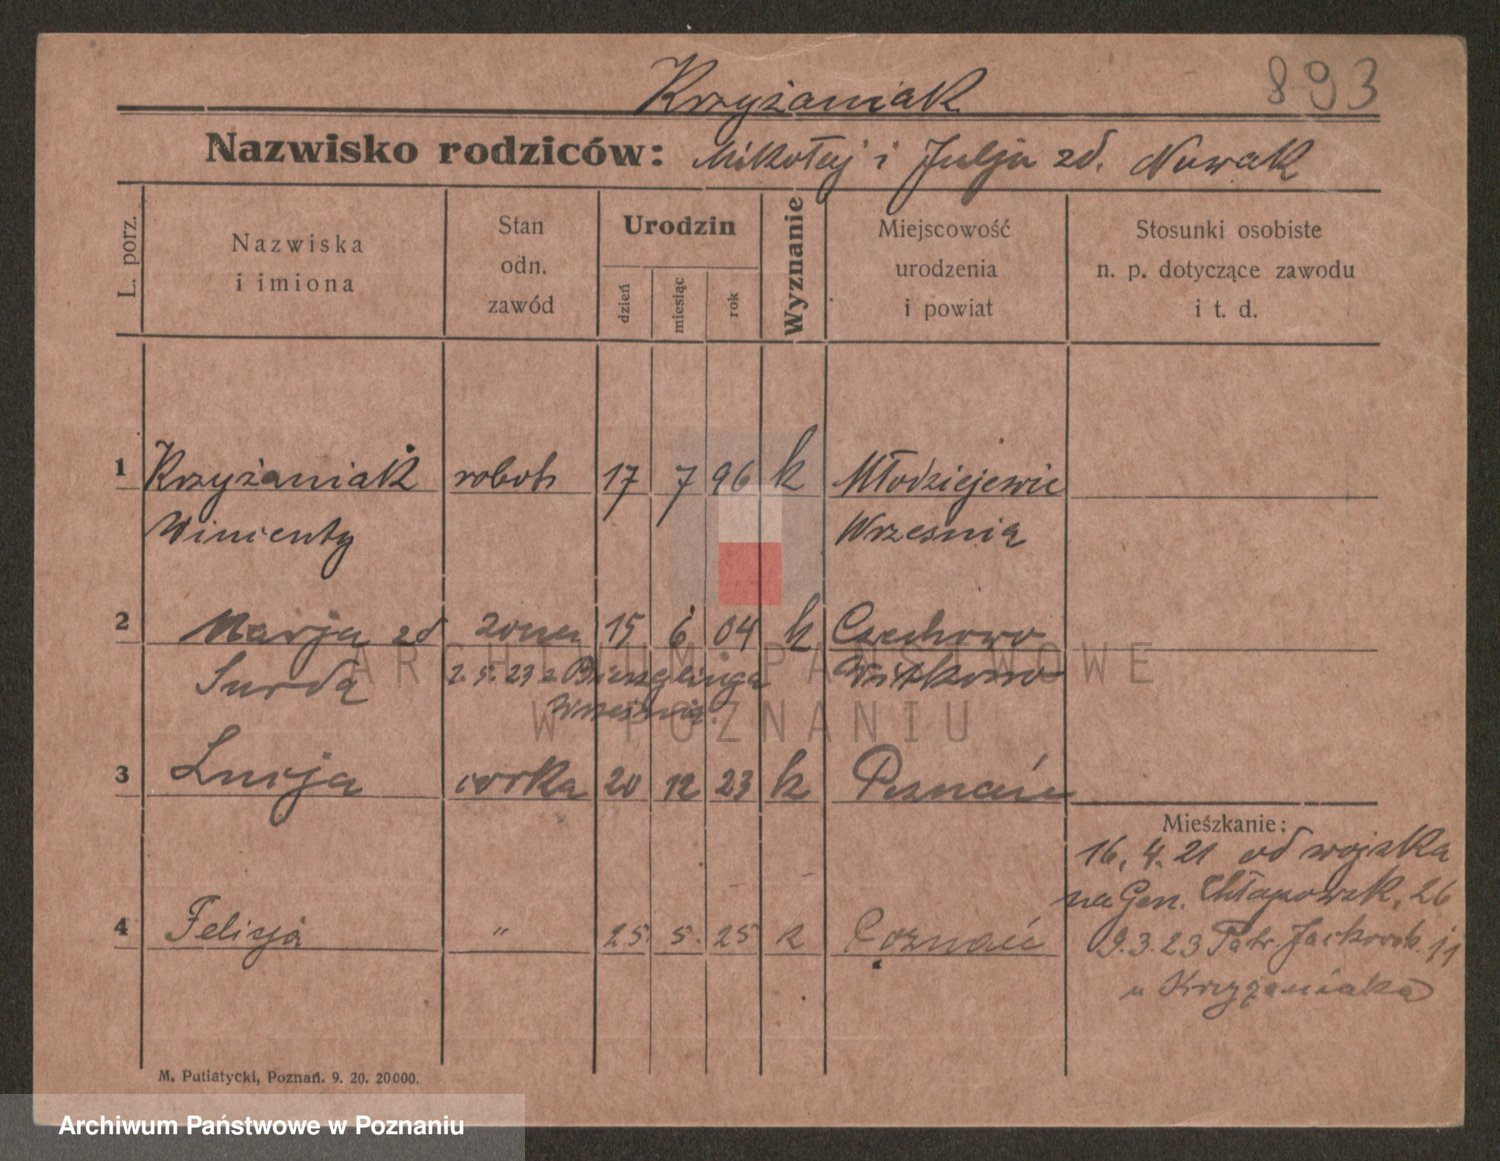 Krzyżaniak 893
Nazwisko rodziców: Mikołaj i Julja zd. Nowak
L. porz.
Nazwiska
i imiona
Stan
odn.
zawód
Urodzin
dzień
miesiąc
rok
Wyznanie
Miejscowość
urodzenia
i powiat
Stosunki osobiste
n. p. dotyczące zawodu
i t. d.
1 Krzyżaniak robotn 17 7 96 k Młodziejewic
Wincenty Wrzesnią
2 Marja zd żona 15 6 04 k Czechowo
Surdą 2.5.23 z Bierzglinga Witkowo
Wrzesnią.
3 Lucja corka 20 12 23 k Poznań
Mieszkanie:
16. 4. 21 od wojska
na Gen. Chłapowsk. 26
4 Felicja " 25 5. 25 k Poznań 9.3.23 Patr. Jackowsk. 11
u Krzyżaniaka
M. Putiatycki, Poznań. 9. 20. 20000.
ARCHIWUM PAŃSTWOWE
W POZNANIU
Archiwum Państwowe w Poznaniu